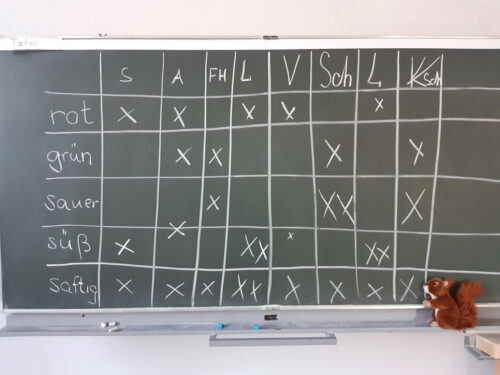 Tafel
S A FH L V Sch L KSch
rot X X X X X
grün X X X X
sauer X XX X
süß X X XX X XX
saftig X X X XX X X X X